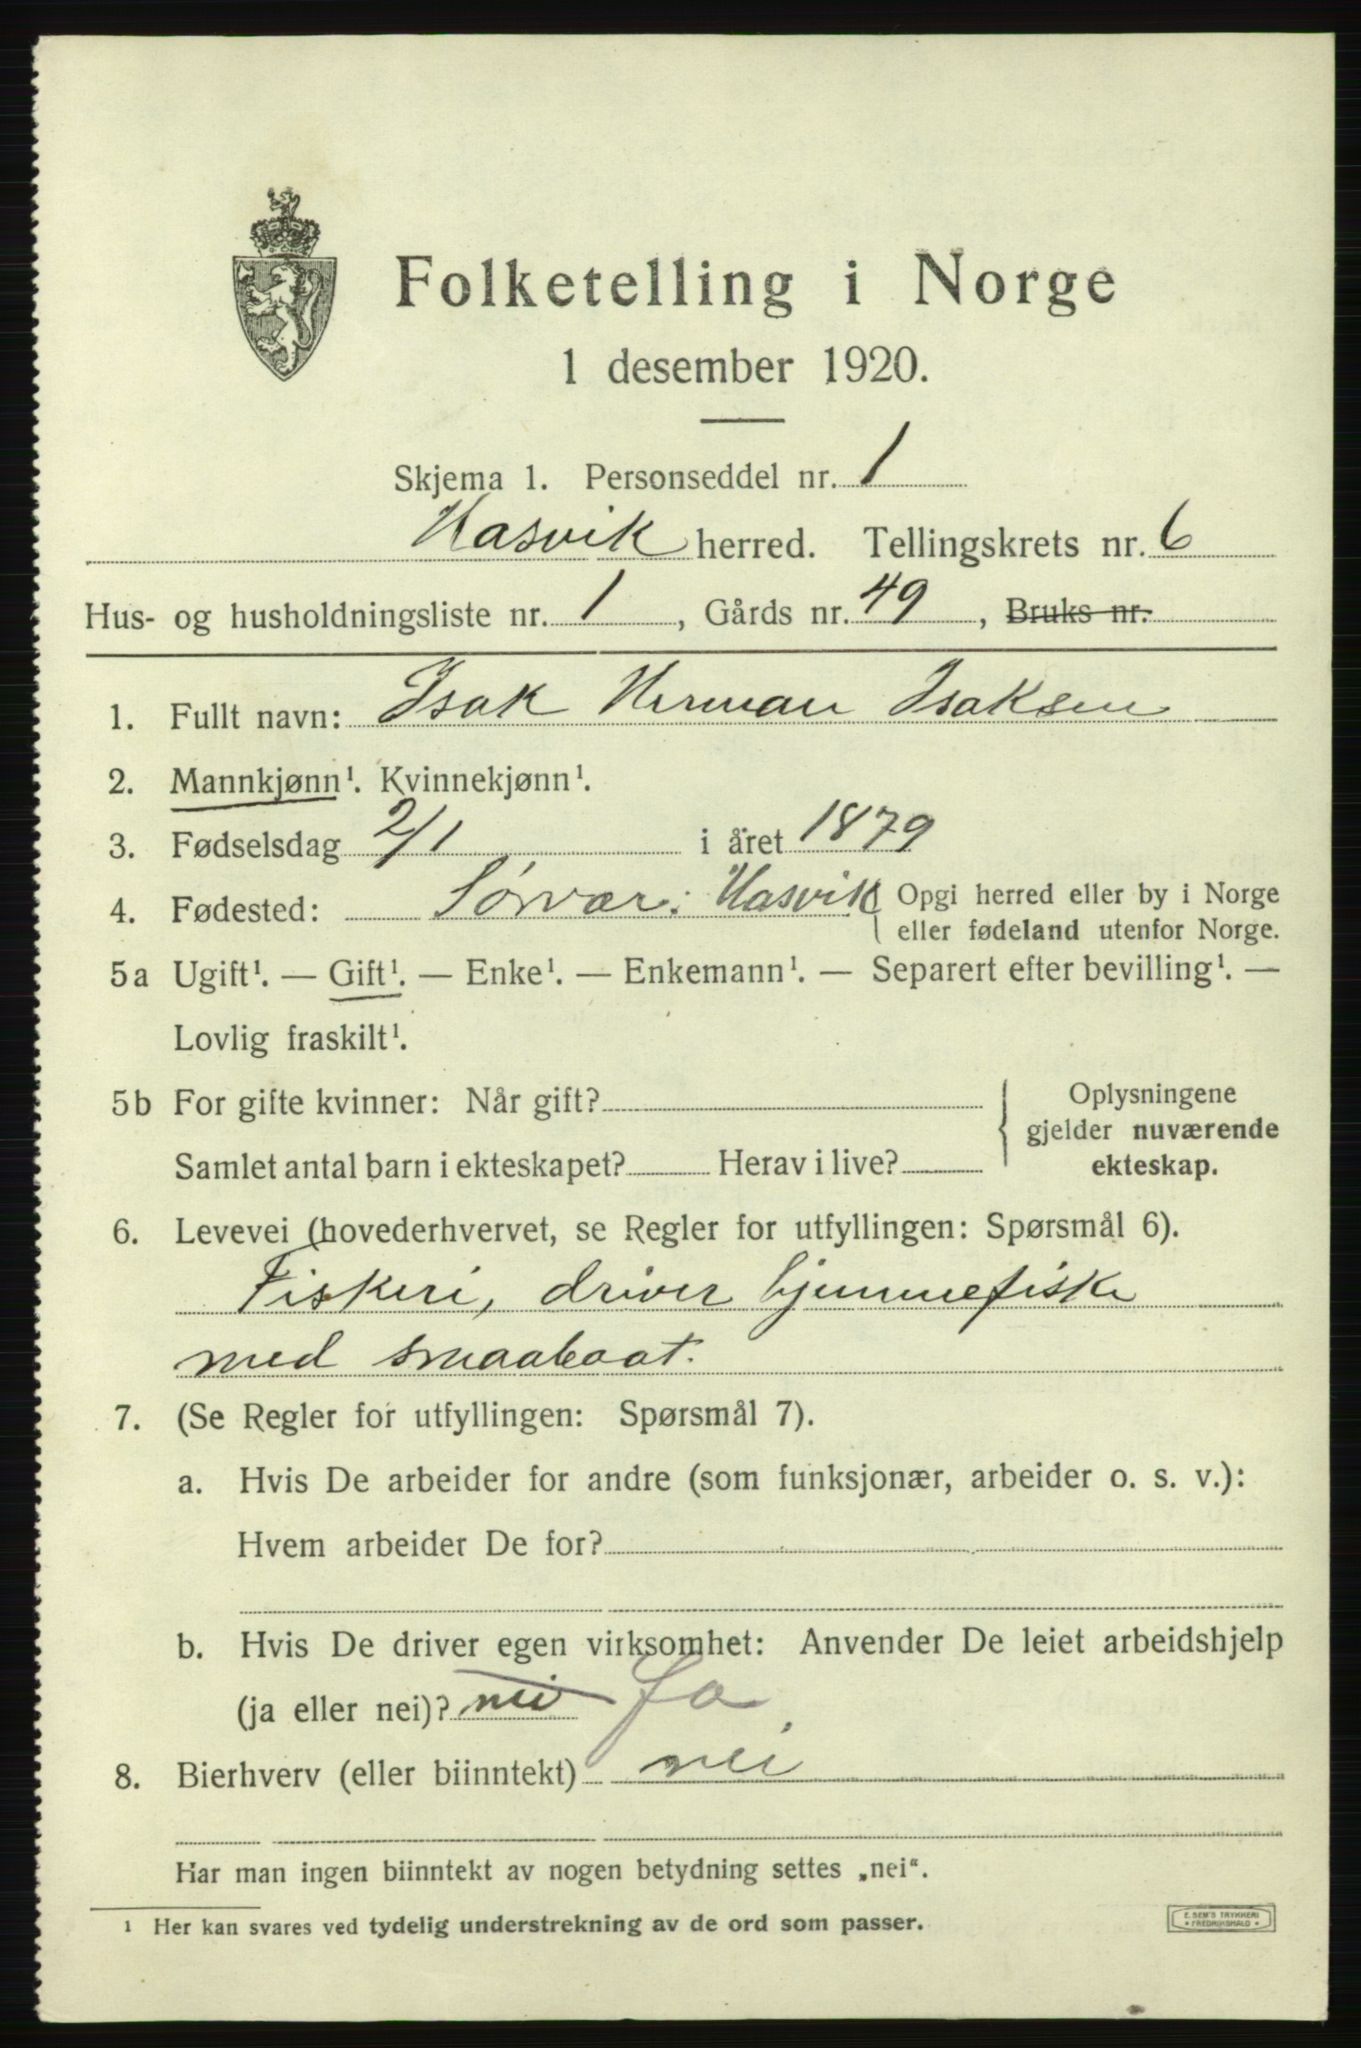 Folketelling i Norge
1 desember 1920.
Skjema 1. Personseddel nr. 1
Hasvik herred. Tellingskrets nr. 6
Hus- og husholdningsliste nr. 1, Gårds nr. 49, Bruks nr.
1. Fullt navn: Isak Herman Isaksen
2. Mannkjønn¹. Kvinnekjønn¹.
3. Fødselsdag 2/1 i året 1879
4. Fødested: Sørvær: Hasvik Opgi herred eller by i Norge
eller fødeland utenfor Norge.
5a Ugift¹. — Gift¹. — Enke¹. — Enkemann¹. — Separert efter bevilling¹. —
Lovlig fraskilt¹.
5b For gifte kvinner: Når gift?
Samlet antal barn i ekteskapet? Herav i live?
Oplysningene
gjelder nuværende
ekteskap.
6. Levevei (hovederhvervet, se Regler for utfyllingen: Spørsmål 6).
Fiskeri, driver hjemmefiske
med smaabaat.
7. (Se Regler for utfyllingen: Spørsmål 7).
a. Hvis De arbeider for andre (som funksjonær, arbeider o. s. v.):
Hvem arbeider De for?
b. Hvis De driver egen virksomhet: Anvender De leiet arbeidshjelp
(ja eller nei)? nei Ja
8. Bierhverv (eller biinntekt) nei
Har man ingen biinntekt av nogen betydning settes „nei“.
¹ Her kan svares ved tydelig understrekning av de ord som passer.
E. SEM'S TRYKKERI
FREDRIKSHALD